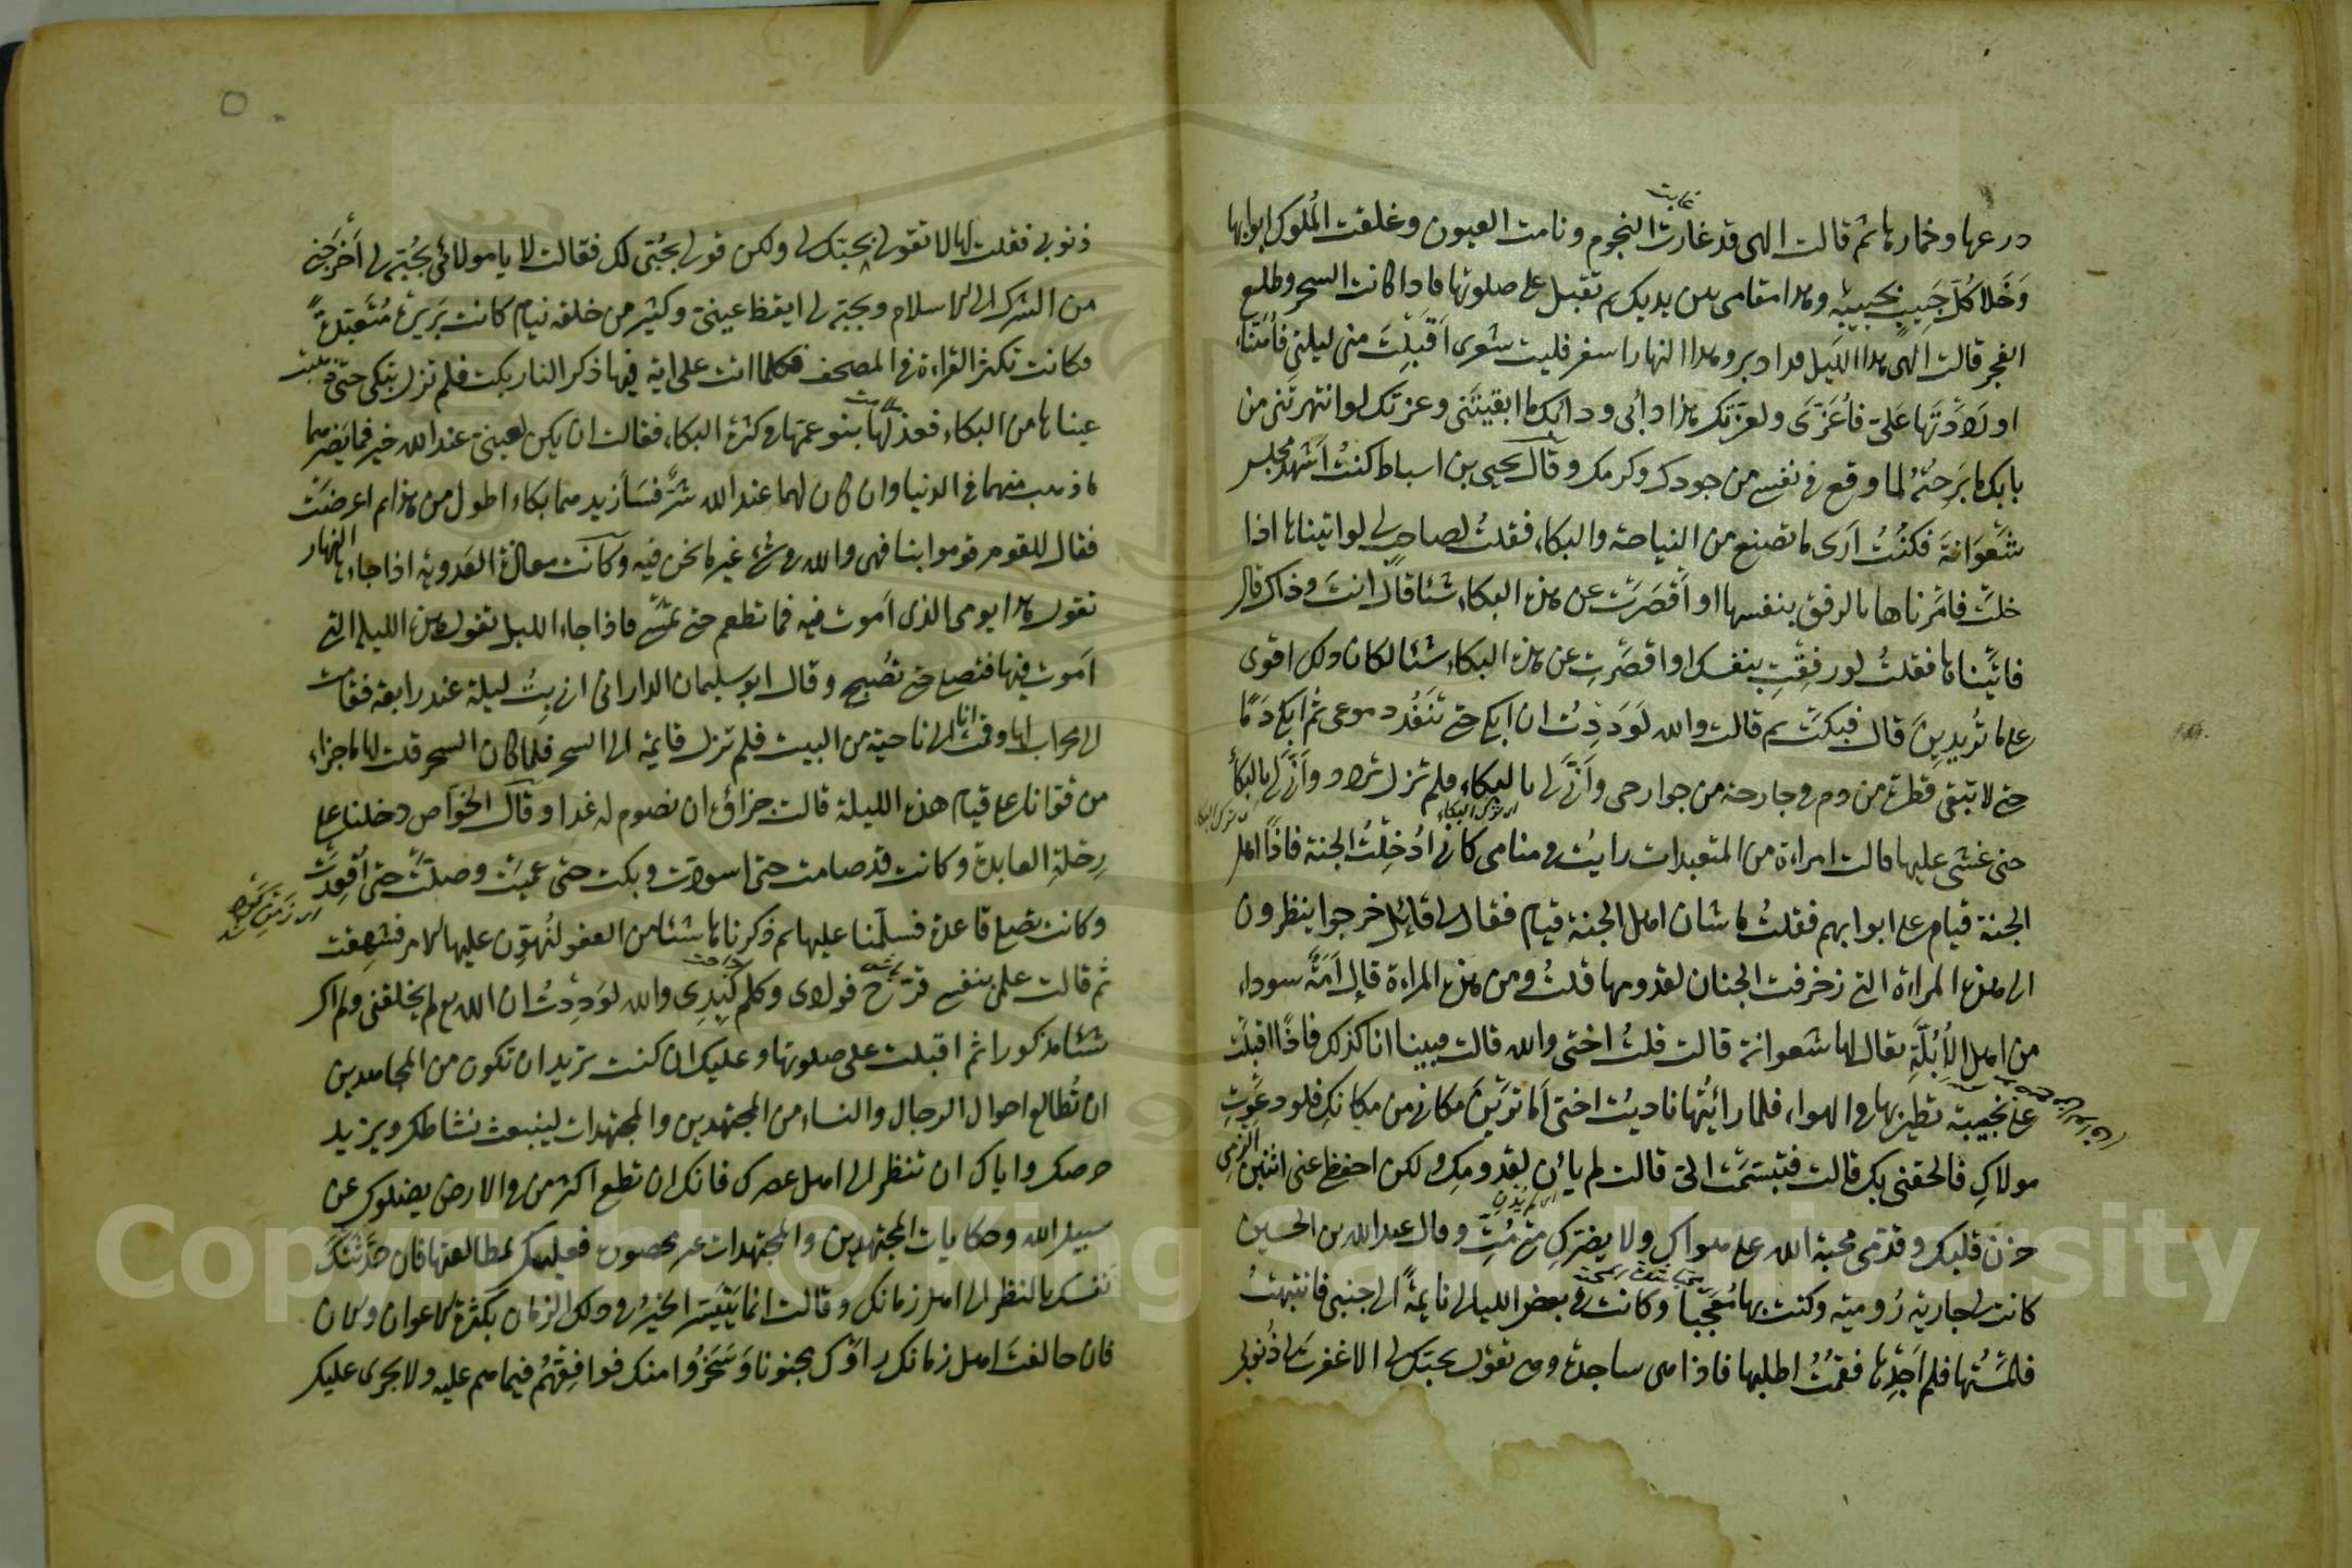 درعها وخمارها ثم قالت الهى قد غارت النجوم ونامت العيون وغلقت الملوك ابوابها
وَخَلا كُلّ حَبيبٍ بحبيبه وهذا مقامى بين يديك ثم تقبل على صلوتها فاذا كانت السحر وطلع
الفجر قالت الهى هذا الليل قد ادبر وهذا النهار اسفر فليت شعرى اَقَبِلْتَ منى ليلتى فاُهَنّاء
او رَدَدْتَهَا عَلَىّ فاُعَزّى ولعزتك هذا دأبى ودأبك ما ابقيتَنى وعزتك لو انتهرتَنى من
بابك ما بَرِحْتُ لما وقع فى نفسى من جودك وكرمك وقال يحيى بن اسباط كنتُ اَشْهَدُ مجلس
شَعْوَانَةَ فكُنْتُ اَرى ما تصنع من النياحة والبكاء فقلتُ لصاحب لى لو اتيناها اذا
خلت فامَرناها بالرفق بنفسها او اَقْصَرَتْ عن هذه البكاء شئا قال انت وذاك قال
فاتيناها فقلتُ لو رفِقْتِ بنفسك او اقصَرتِ عن هذه البكاء شئا لكان ذلك اقوى
على ما تُريدين قال فبكت ثم قالت والله لَوَدِدْتُ ان ابكى حتى تنفد دموعى ثم ابكى دَمًا
حتى لا تبقى قطرة من دم فى جارحة من جوارحى وَاَنّى لى بالبكاء فلم تزل تردد وَاَنّى لى بالبكاء
حتى غشى عليها قالت امراءة من المتعبدات رايت فى منامى كانى اُدْخِلْتُ الجنة فاذا اهل
الجنة قيام على ابوابهم فقلتُ ما شان اهل الجنة قيام فقال لى قائل خرجوا ينظرون
الى هذه المراءة التى زخرفت الجنان لقدومها قلتُ ومن هذه المراءة قال اَمَةٌ سوداء
من اهل الاُبُلّةِ يقال لها شعوانة قالت قلتُ اختى والله قالت فبينا انا كذلك فاذا اقبلت
على نجيبة تطير بها فى الهواء فلما رائيتها ناديت اختى اَما تَرَيْنَ مكانى من مكانك فلو دعوتِ
مولاكِ فالحقنى بك قالت فتبسمت الىّ قالت لم يأن لقدومك ولكن احفظى عنى اثنين الزمى
حزن قلبك وقدّمى محبة الله على هواكِ ولا يضركِ متى مُتِّ وقال عبد الله بن الحسين
كانت لى جارية رُوميّة وكنت بها مُعجَبا وكانت فى بعض الليالى نايمةً الى جنبى فانتبهتُ
فلمَسْتُها فلم اَجِدْها فقُمْتُ اطلبها فاذا هى ساجدة وهى تقول بحبّك لى الا غفرت لى ذُنوبى
ذنوبى فقلت لها لا تقولى بحبّك لى ولكن قولى بحُبّى لك فقالت لا يا مولائى بحُبّه لى اَخرَجنى
من الشرك الى الاسلام وبحبّه لى ايقظ عينىّ وكثير من خلقه نيام كانت بَرِيرةُ مُتَعبّدةً
وكانت تكثر القراءة فى المصحف فكلما اتت على اية فيها ذكر النار بكت فلم تزل تبكى حتى ذهبت
عيناها من البكاء فعذلها بنو عمّها فى كثرة البكاء فقالت ان يكن لعينىّ عند الله خير فما يَضرّهما
ما ذهب منهما فى الدنيا وان كان لهما عند الله شرّ فسَأزيدهما بكاء اطول من هذا ثم اعرضت
فقال للقوم قوموا بنا فهى والله فى شئ غير ما نحن فيه وكانت معاذة العَدوية اذا جاء النهار
تقول هذا يومى الذى اَموت فيه فما تطعم حتى تُمسى فاذا جاء الليل تقول هذه الليلة التى
اَموت فيها فتصلى حتى تُصبح وقال ابو سليمان الدارانى انى بِتُّ ليلة عند رابعة فقامت
الى محراب لها وقمتُ انا الى ناحية من البيت فلم تزل قايمة الى السحر فلما كان السحر قلت لها ما جزاء
من قوانا على قيام هذه الليلة قالت جزاؤه ان نصوم له غدا وقال الخوّاص دخلنا على
رِحْلةِ العابدة وكانت قد صامت حتى اسودّت وبكت حتى عَمِيَت وصلّت حتى اُقعِدَت
وكانت تصلى قاعدة فسلّمنا عليها ثم ذكرناها شئا من العفو لنُهوّن عليها الامر فشهقت
ثم قالت علمى بنفسى قرّح فوادى وكلم كَبِدِى والله لوَدِدْتُ ان الله تع لم يخلقنى ولم اك
شئا مذكورا ثم اقبلت على صلوتها وعليك ان كنت تريد ان تكون من المجاهدين
ان تُطالع احوال الرجال والنساء من المجتهدين والمجتهدات لينبعث نشاطك ويزيد
حرصك واياك ان تنظر الى اهل عصرك فانك ان تطع اكثر من فى الارض يضلوك عن
سبيل الله وحكايات المجتهدين والمجتهدات غير محصورة فعليك بمطالعتها فان حدّثتك
نفسك بالنظر الى اهل زمانك وقالت انما يَتَيَسّر الخيرُ فى ذلك الزمان بكثرة الاعوان والان
فان خالفتَ اهل زمانك راَوْك مجنونا وَسَخِرُوا منك فوافِقْهُم فيما هم عليه ولا يجرى عليك